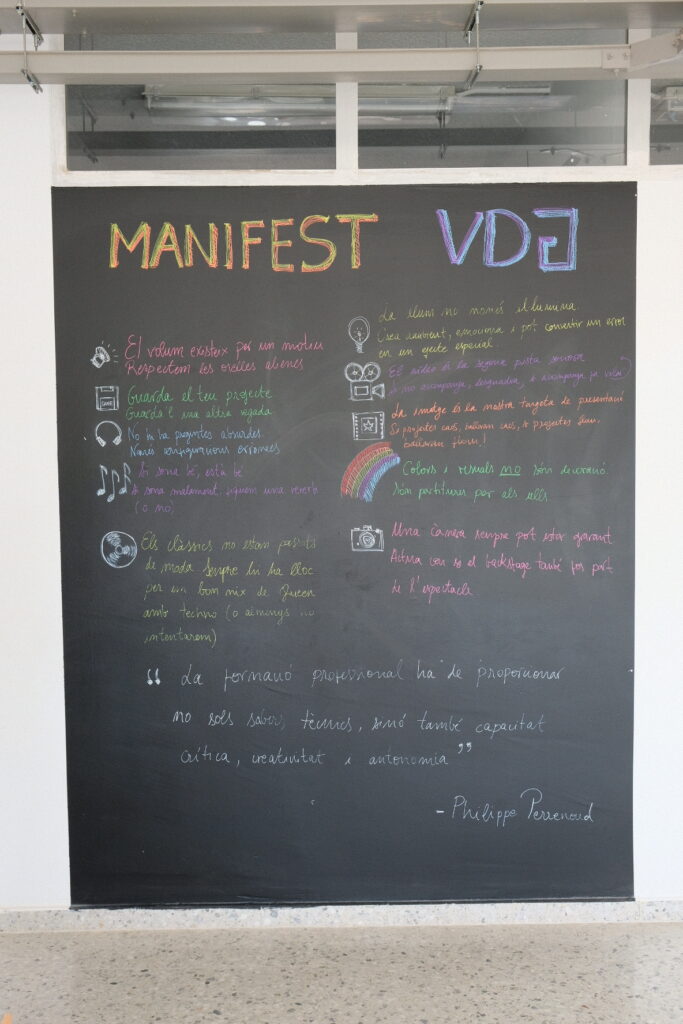 MANIFEST VDJ
El volum existeix per un motiu
Respectem les orelles alienes
Guarda el teu projecte
Guarda'l una altra vegada
No hi ha preguntes absurdes
Només configuracions errònies
Si sona bé, està bé
Si sona malament, siguem una reverb
(o no)
Els clàssics no estan passats
de moda Sempre hi ha lloc
per un bon mix de Queen
amb techno (o almenys ho
intentarem)
La llum no només il·lumina.
Crea ambient, emociona i pot convertir un error
en un efecte especial
El vídeo és la segona pista sonora
Si no acompanya, desquadra, i acompanya ja vola
La imatge és la nostra targeta de presentació
Si projectes caos, ballaran caos, si projectes flow,
ballaran flow!
Colors i visuals NO són decoració.
Són partitures per als ulls
Una càmera sempre pot estar gravant
Actua com si el backstage també fos part
de l'espectacle
“ La formació professional ha de proporcionar
no sols sabers tècnics, sinó també capacitat
crítica, creativitat i autonomia ”
- Philippe Perrenoud